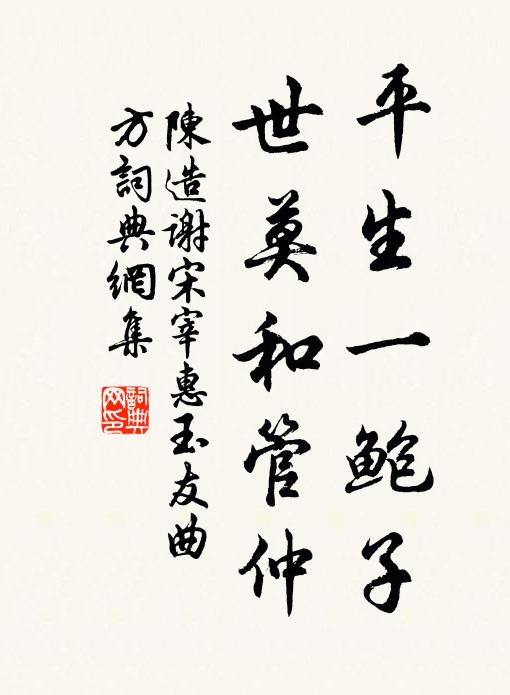 平生一鲍子
世莫和管仲
陳造謝宋宰惠玉友曲
方詞典網集
詞典网印